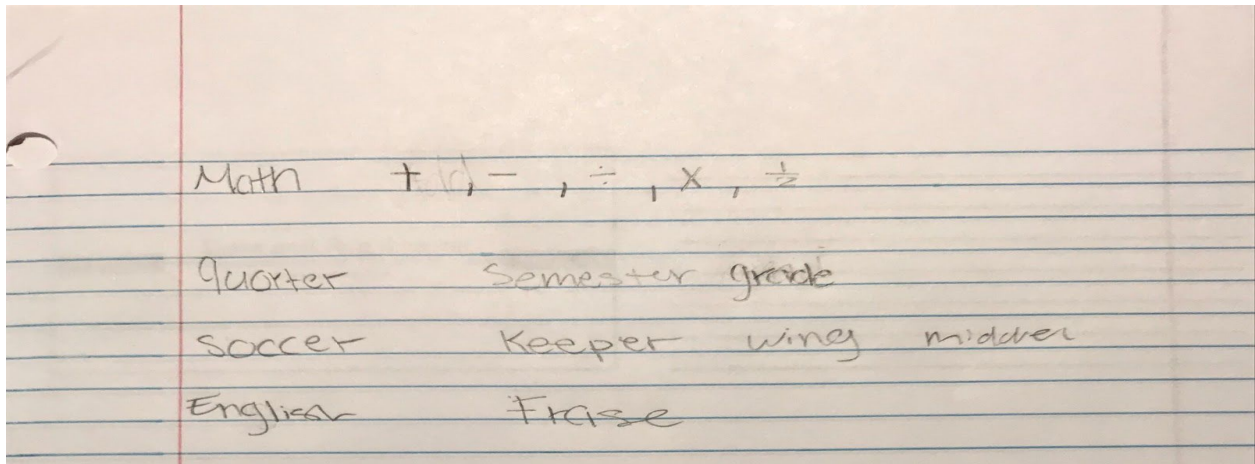 Math + , - , ÷ , x , 1/2
Quarter Semester grade
Soccer Keeper wing midder
English Frase